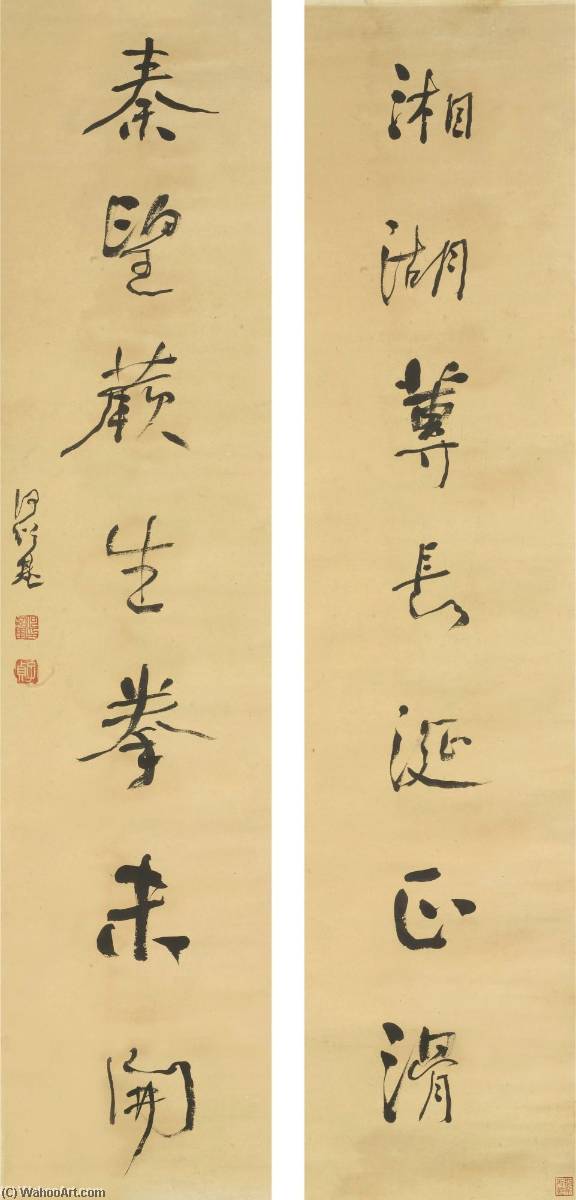 湘湖蓴長涎正滑
秦望蕨生拳未開
何紹基
(C) WahooArt.com